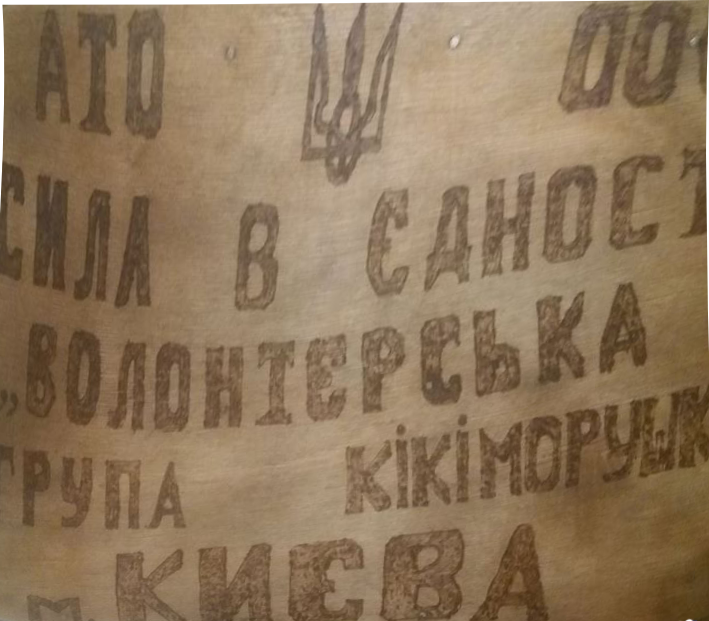 АТО ООС
СИЛА В ЄДНОСТ
„ВОЛОНТЄРСЬКА
ГРУПА КіКіМОРУШК
м. КИЄВА